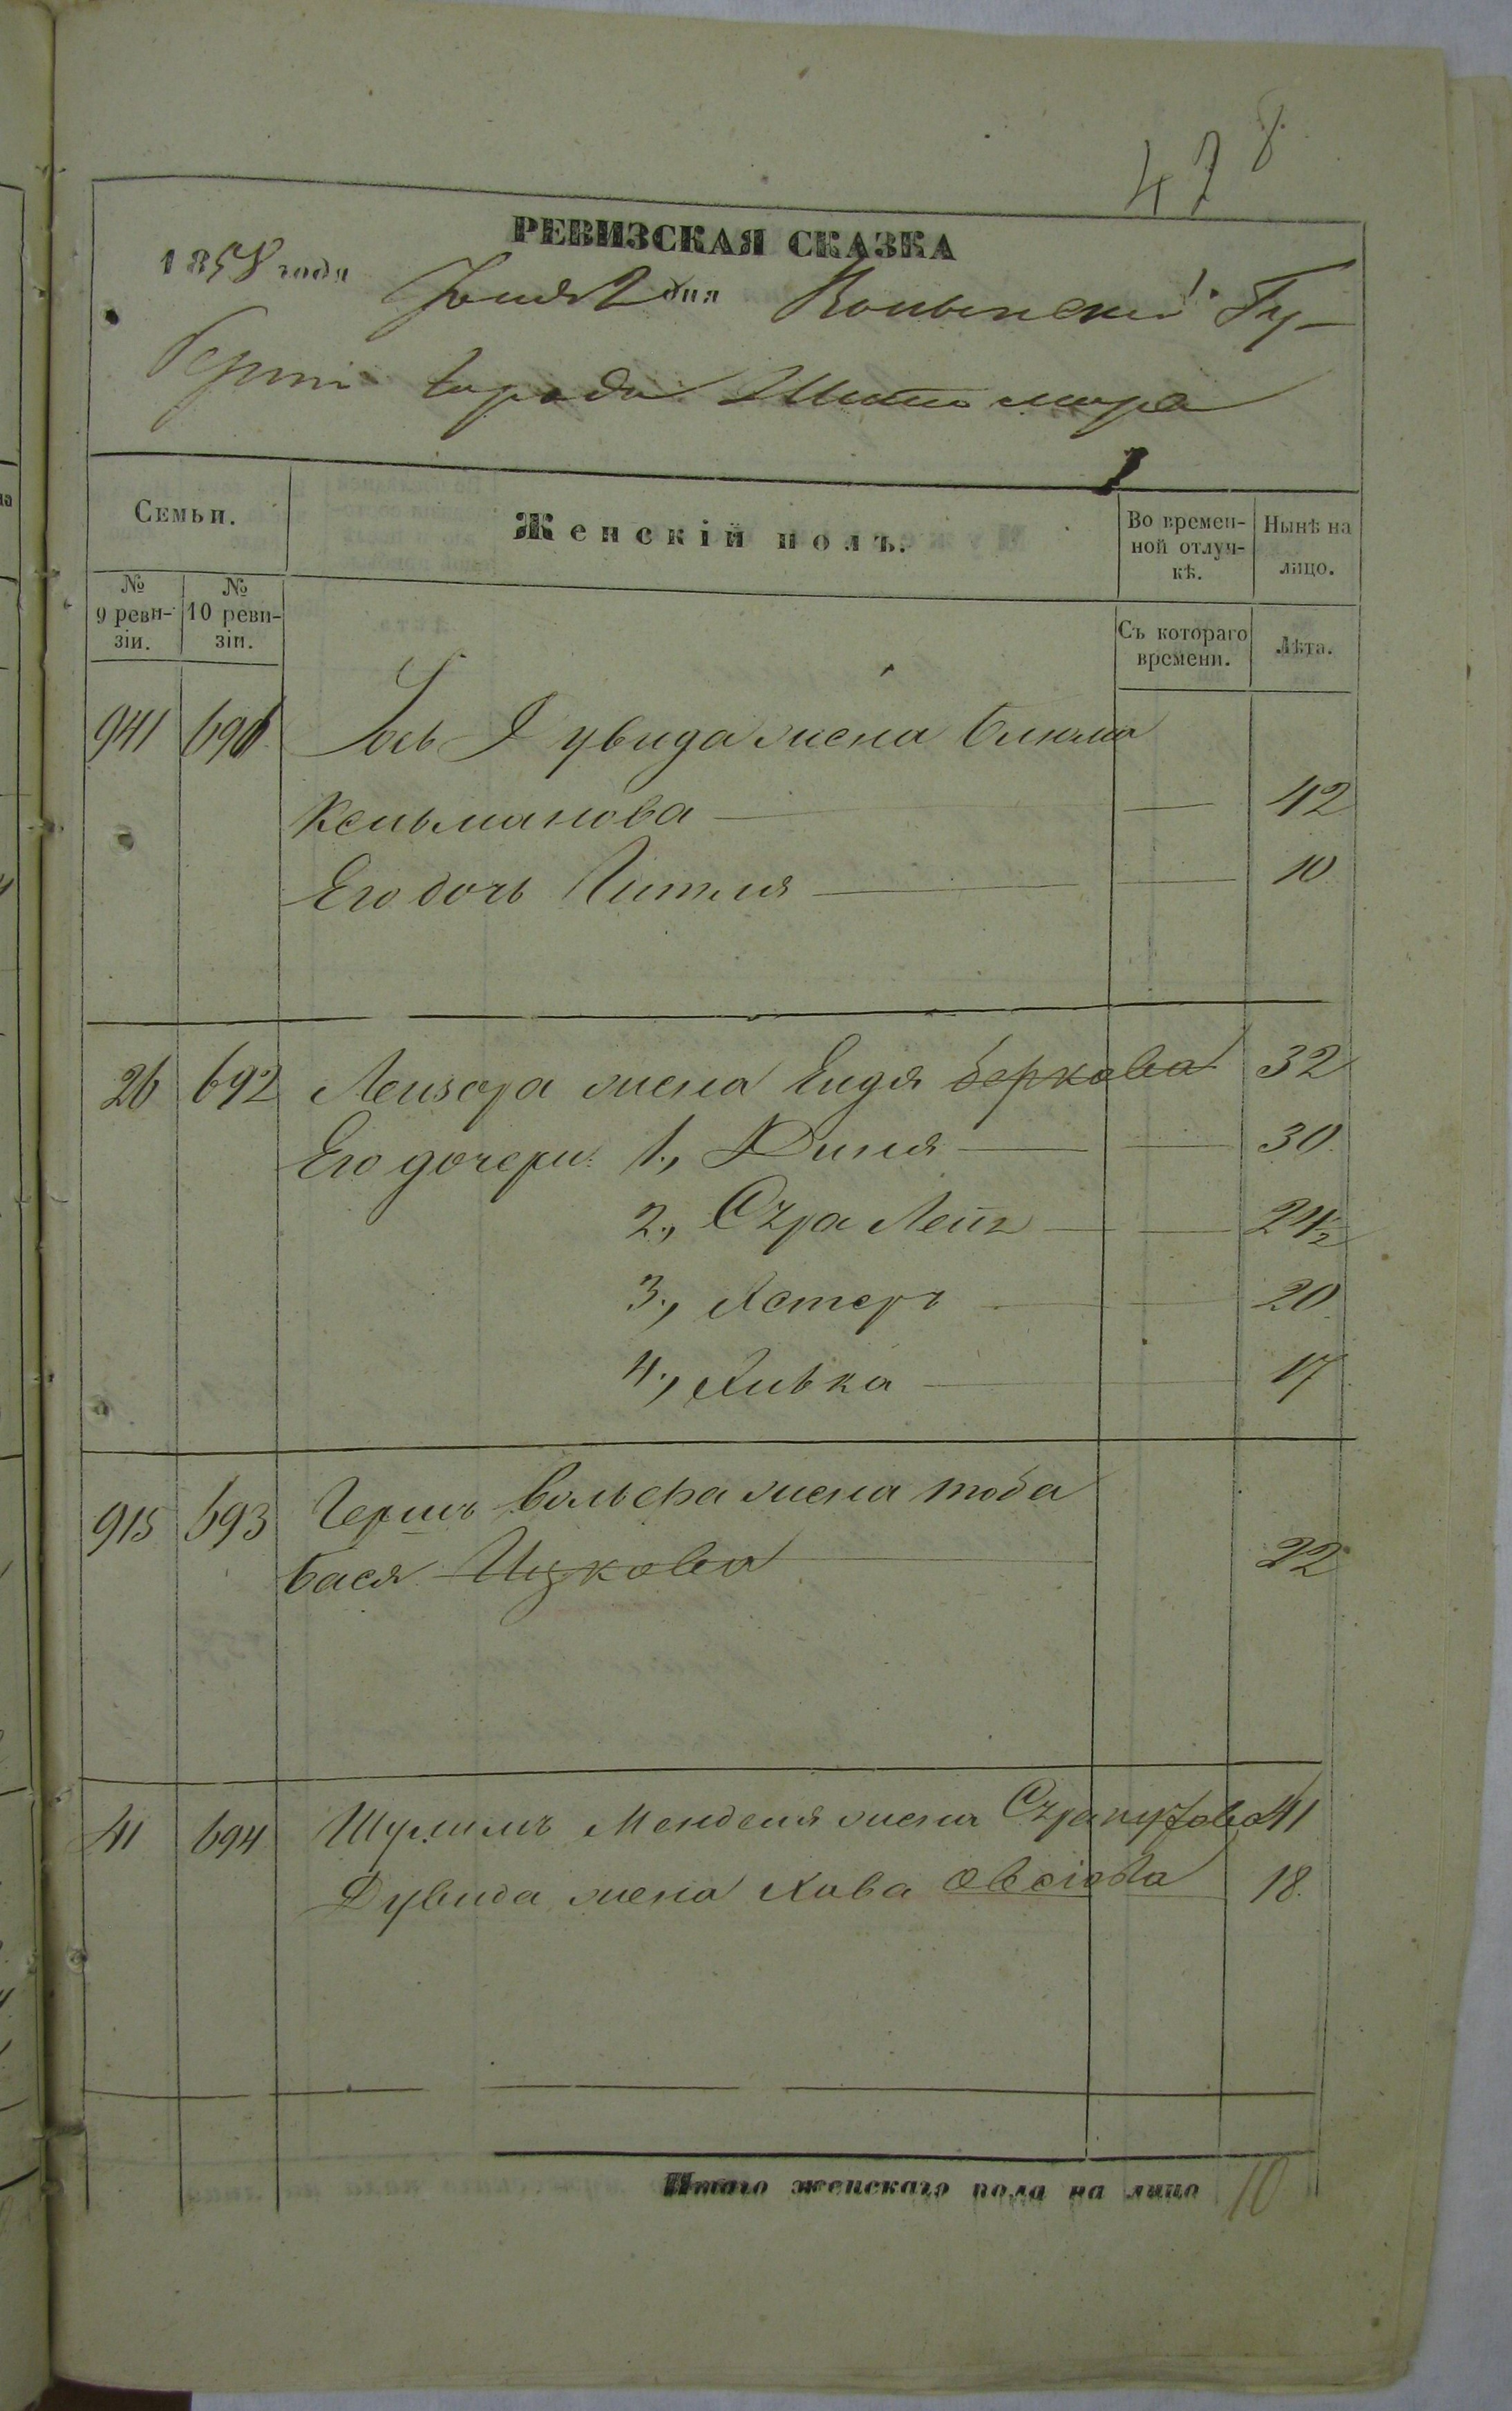 478
РЕВИЗСКАЯ СКАЗКА
1858 года Іюня 2 дня Волынской Гу-
берніи города Житомира
Семьи.
Женскій полъ.
Во времен-
ной отлуч-
кѣ.
Нынѣ на
лицо.
№
9 реви-
зіи.
№
10 реви-
зіи.
Съ котораго
времени.
Лѣта.
941 691 Іось Дувида жена Блюма
Кельманова — — 42
Его дочь Гитля — — 10
26 692 Лейзора жена Ендя Беркова 32
Его дочери: 1., Диня — — 30
2., Сура Лея — — 24½
3., Хстеръ — — 20
4., Ривка — — 17
915 693 Гершъ Вольфа жена Тоба
Бася Ицкова — 22
41 694 Шулимъ Менделя жена Сура 41
Дувида жена Хава Овсіова 18.
Итого женскаго пола на лицо 10